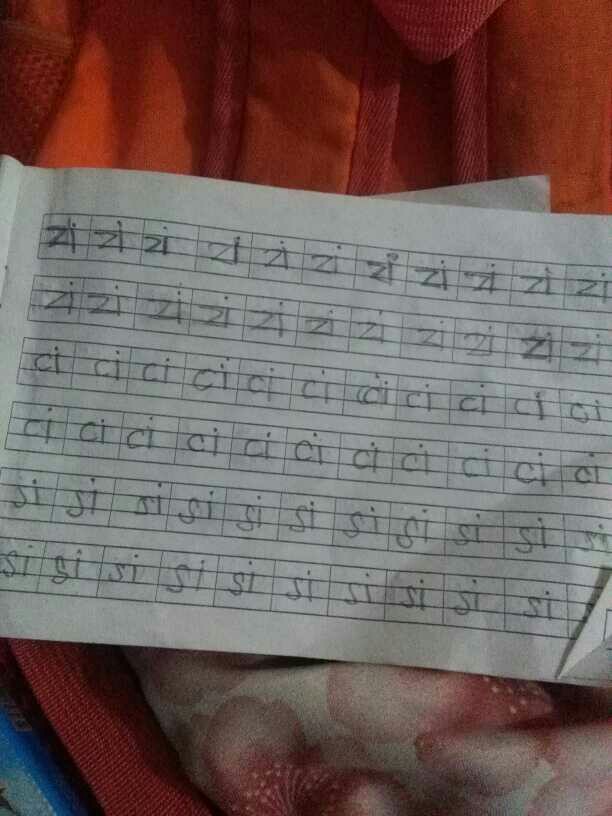 zi zi zi zi zi zi zi zi zi zi zi
zi zi zi zi zi zi zi zi zi zi zi
ci ci ci ci ci ci ci ci ci ci ci
ci ci ci ci ci ci ci ci ci ci ci
si si si si si si si si si si si
si si si si si si si si si si